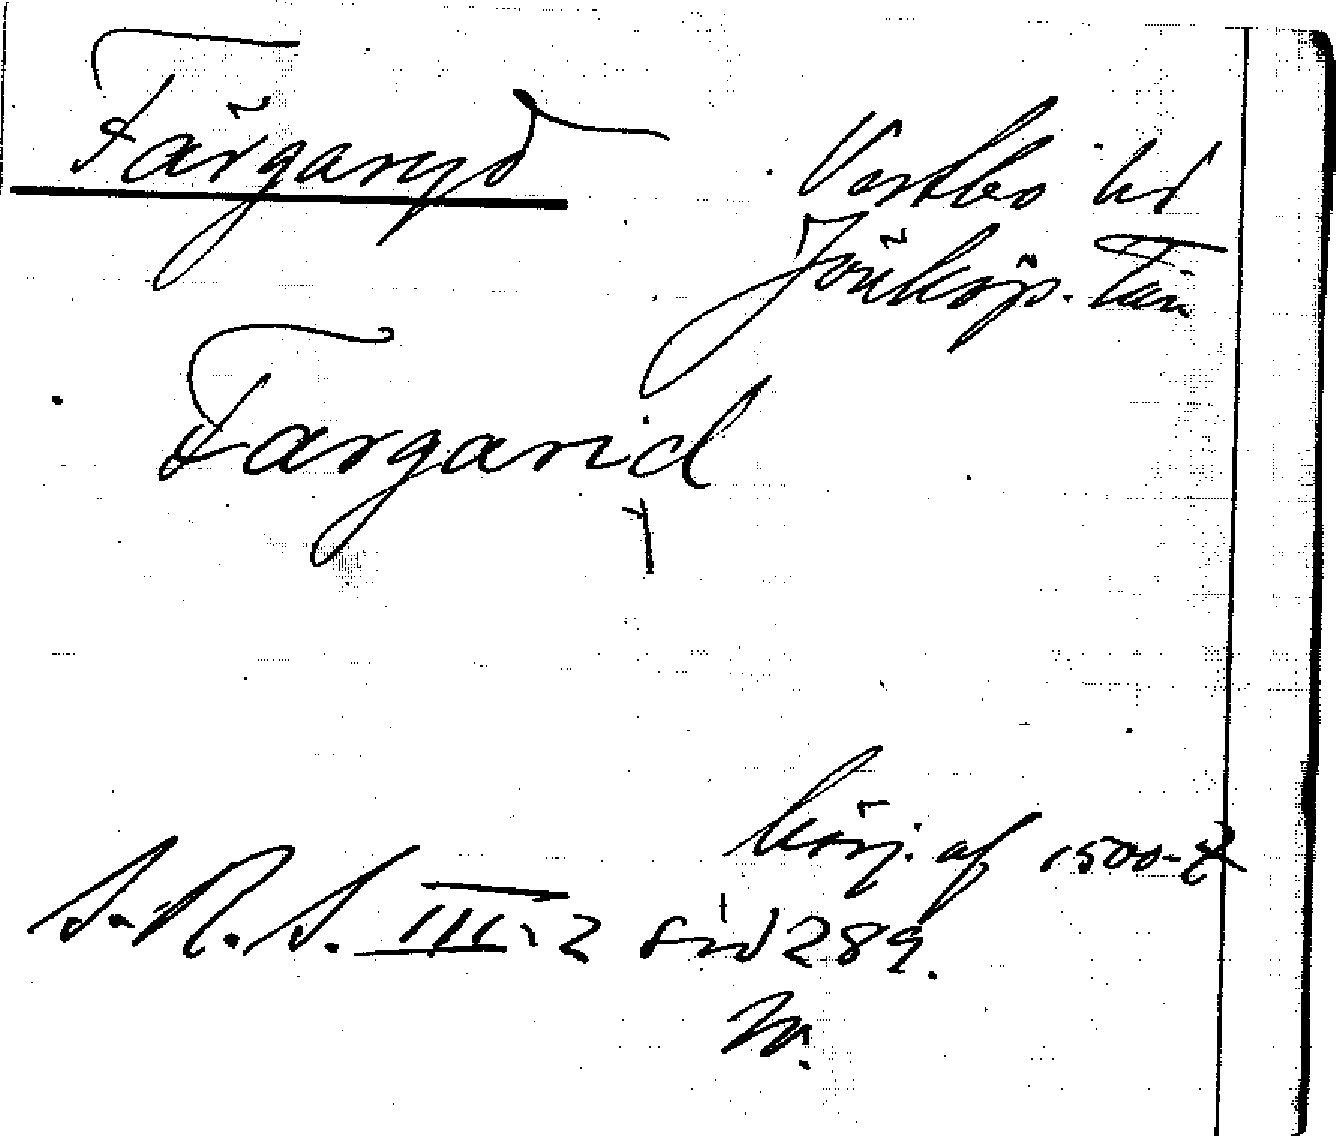 Färgaryd
Vestbo hd
Jönköp. län
Fargarid
börj. af 1500-t
S. R. S. III. 2 sid 289.